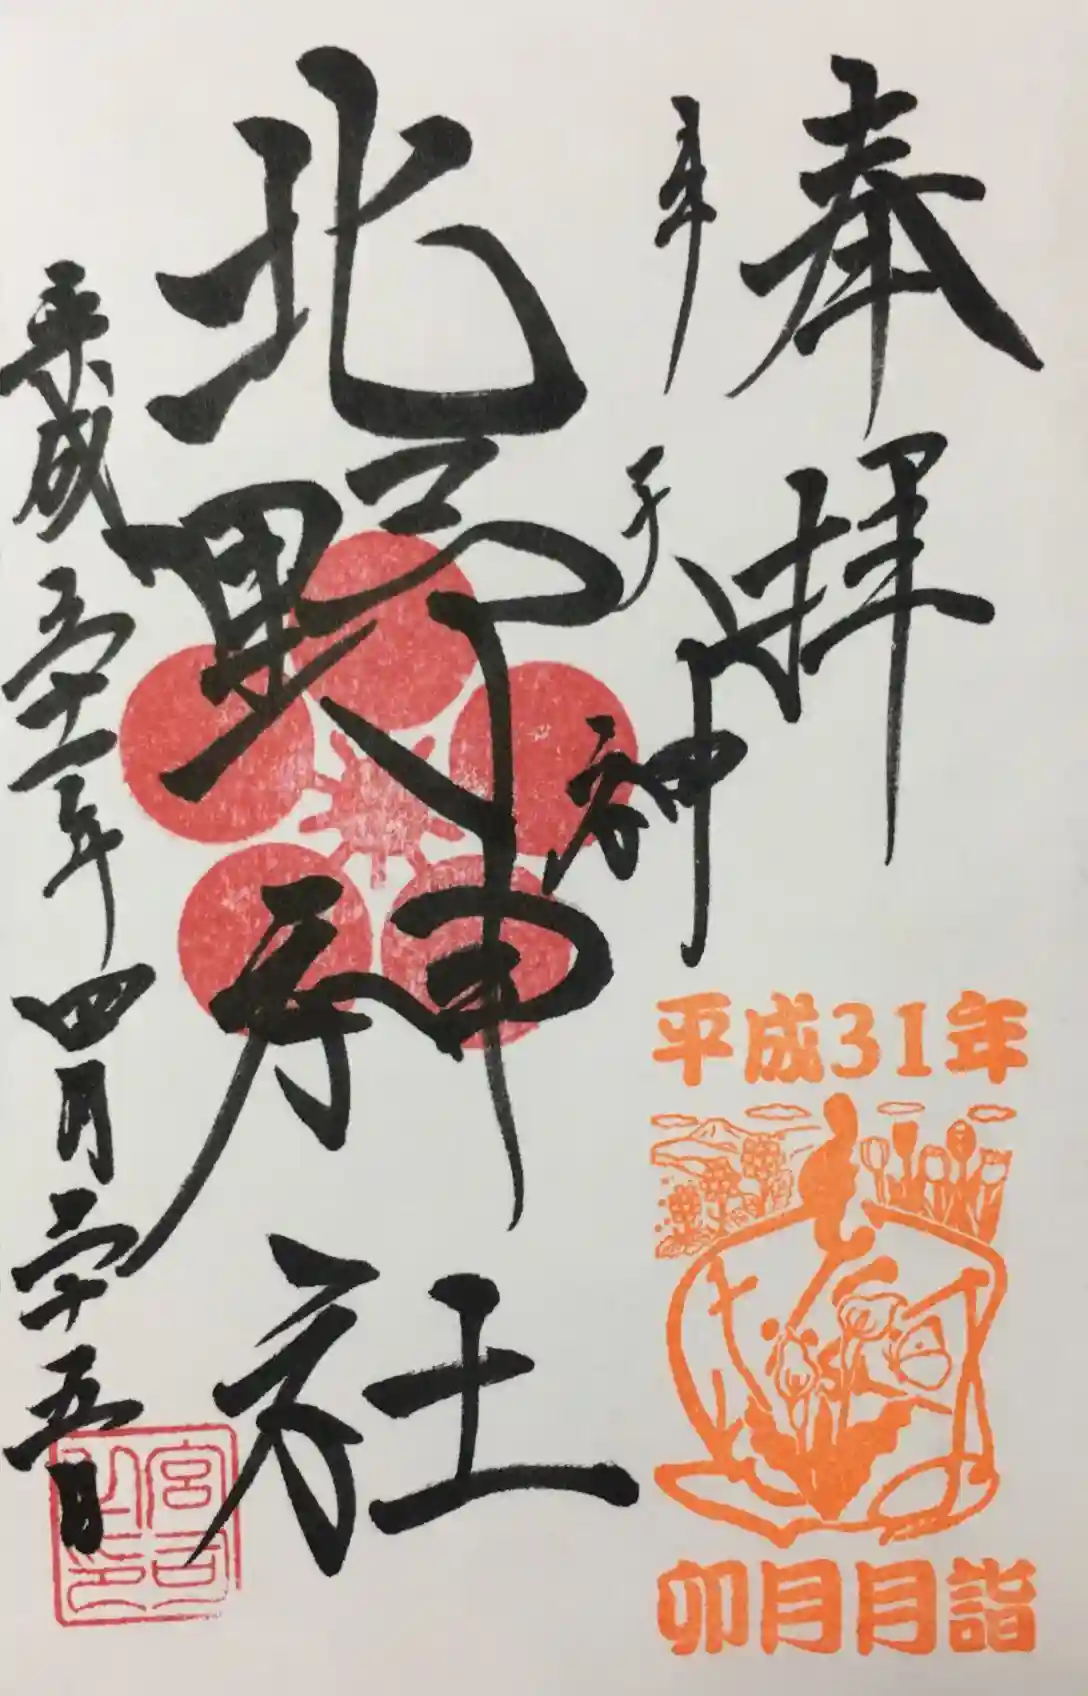 奉拝
年
子
神
北野神社
平成三十一年四月二十五日
平成31年
卯月月詣
宮司之印